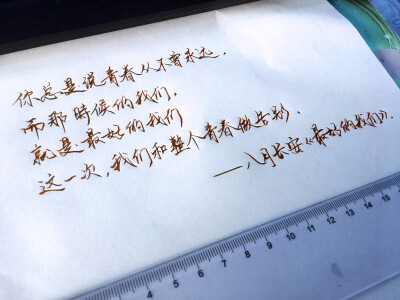 你总是说青春从不曾永远，
而那时候的我们，
就是最好的我们
这一次，我们和整个青春做告别．
——八月长安《最好的我们》．
4 5 6 7 8 9 10 11 12 13 14 15